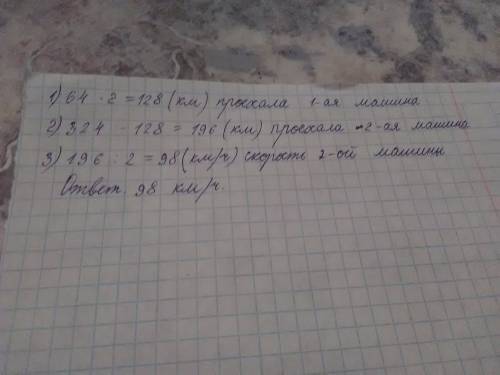 1) 64 · 2 = 128 (км) проехала 1-ая машина
2) 324 - 128 = 196 (км) проехала 2-ая машина
3) 196 : 2 = 98 (км/ч) скорость 2-ой машины
Ответ 98 км/ч.